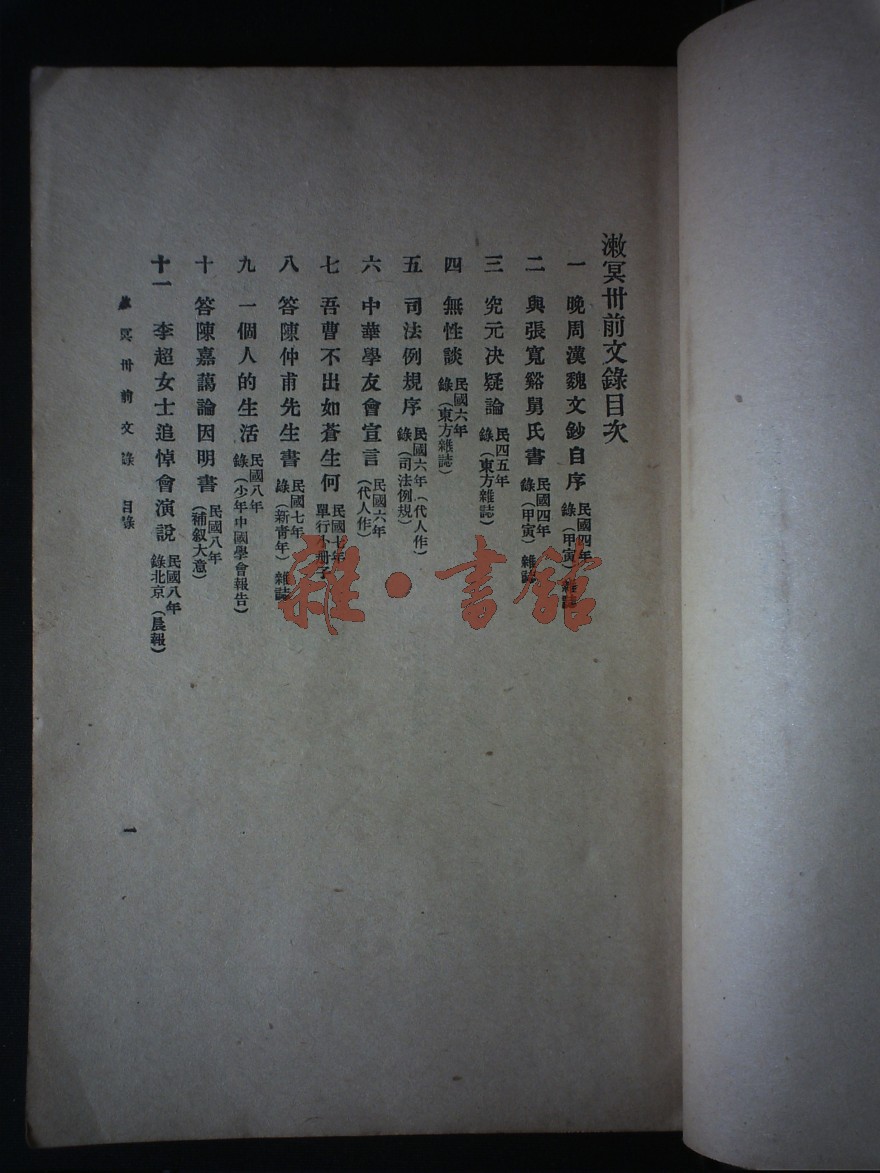 漱冥卅前文錄目次
一 晚周漢魏文鈔自序 民國四年 錄(甲寅)雜誌
二 與張寬谿舅氏書 民國四年 錄(甲寅)雜誌
三 究元決疑論 民四五年 錄(東方雜誌)
四 無性談 民國六年 錄(東方雜誌)
五 司法例規序 民國六年(代人作) 錄(司法例規)
六 中華學友會宣言 民國六年 (代人作)
七 吾曹不出如蒼生何 民國七年 單行小冊子
八 答陳仲甫先生書 民國七年 錄(新青年)雜誌
九 一個人的生活 民國八年 錄(少年中國學會報告)
十 答陳嘉藹論因明書 民國八年 (補叙大意)
十一 李超女士追悼會演說 民國八年 錄北京(晨報)
漱冥卅前文錄 目錄
一
雜·書館